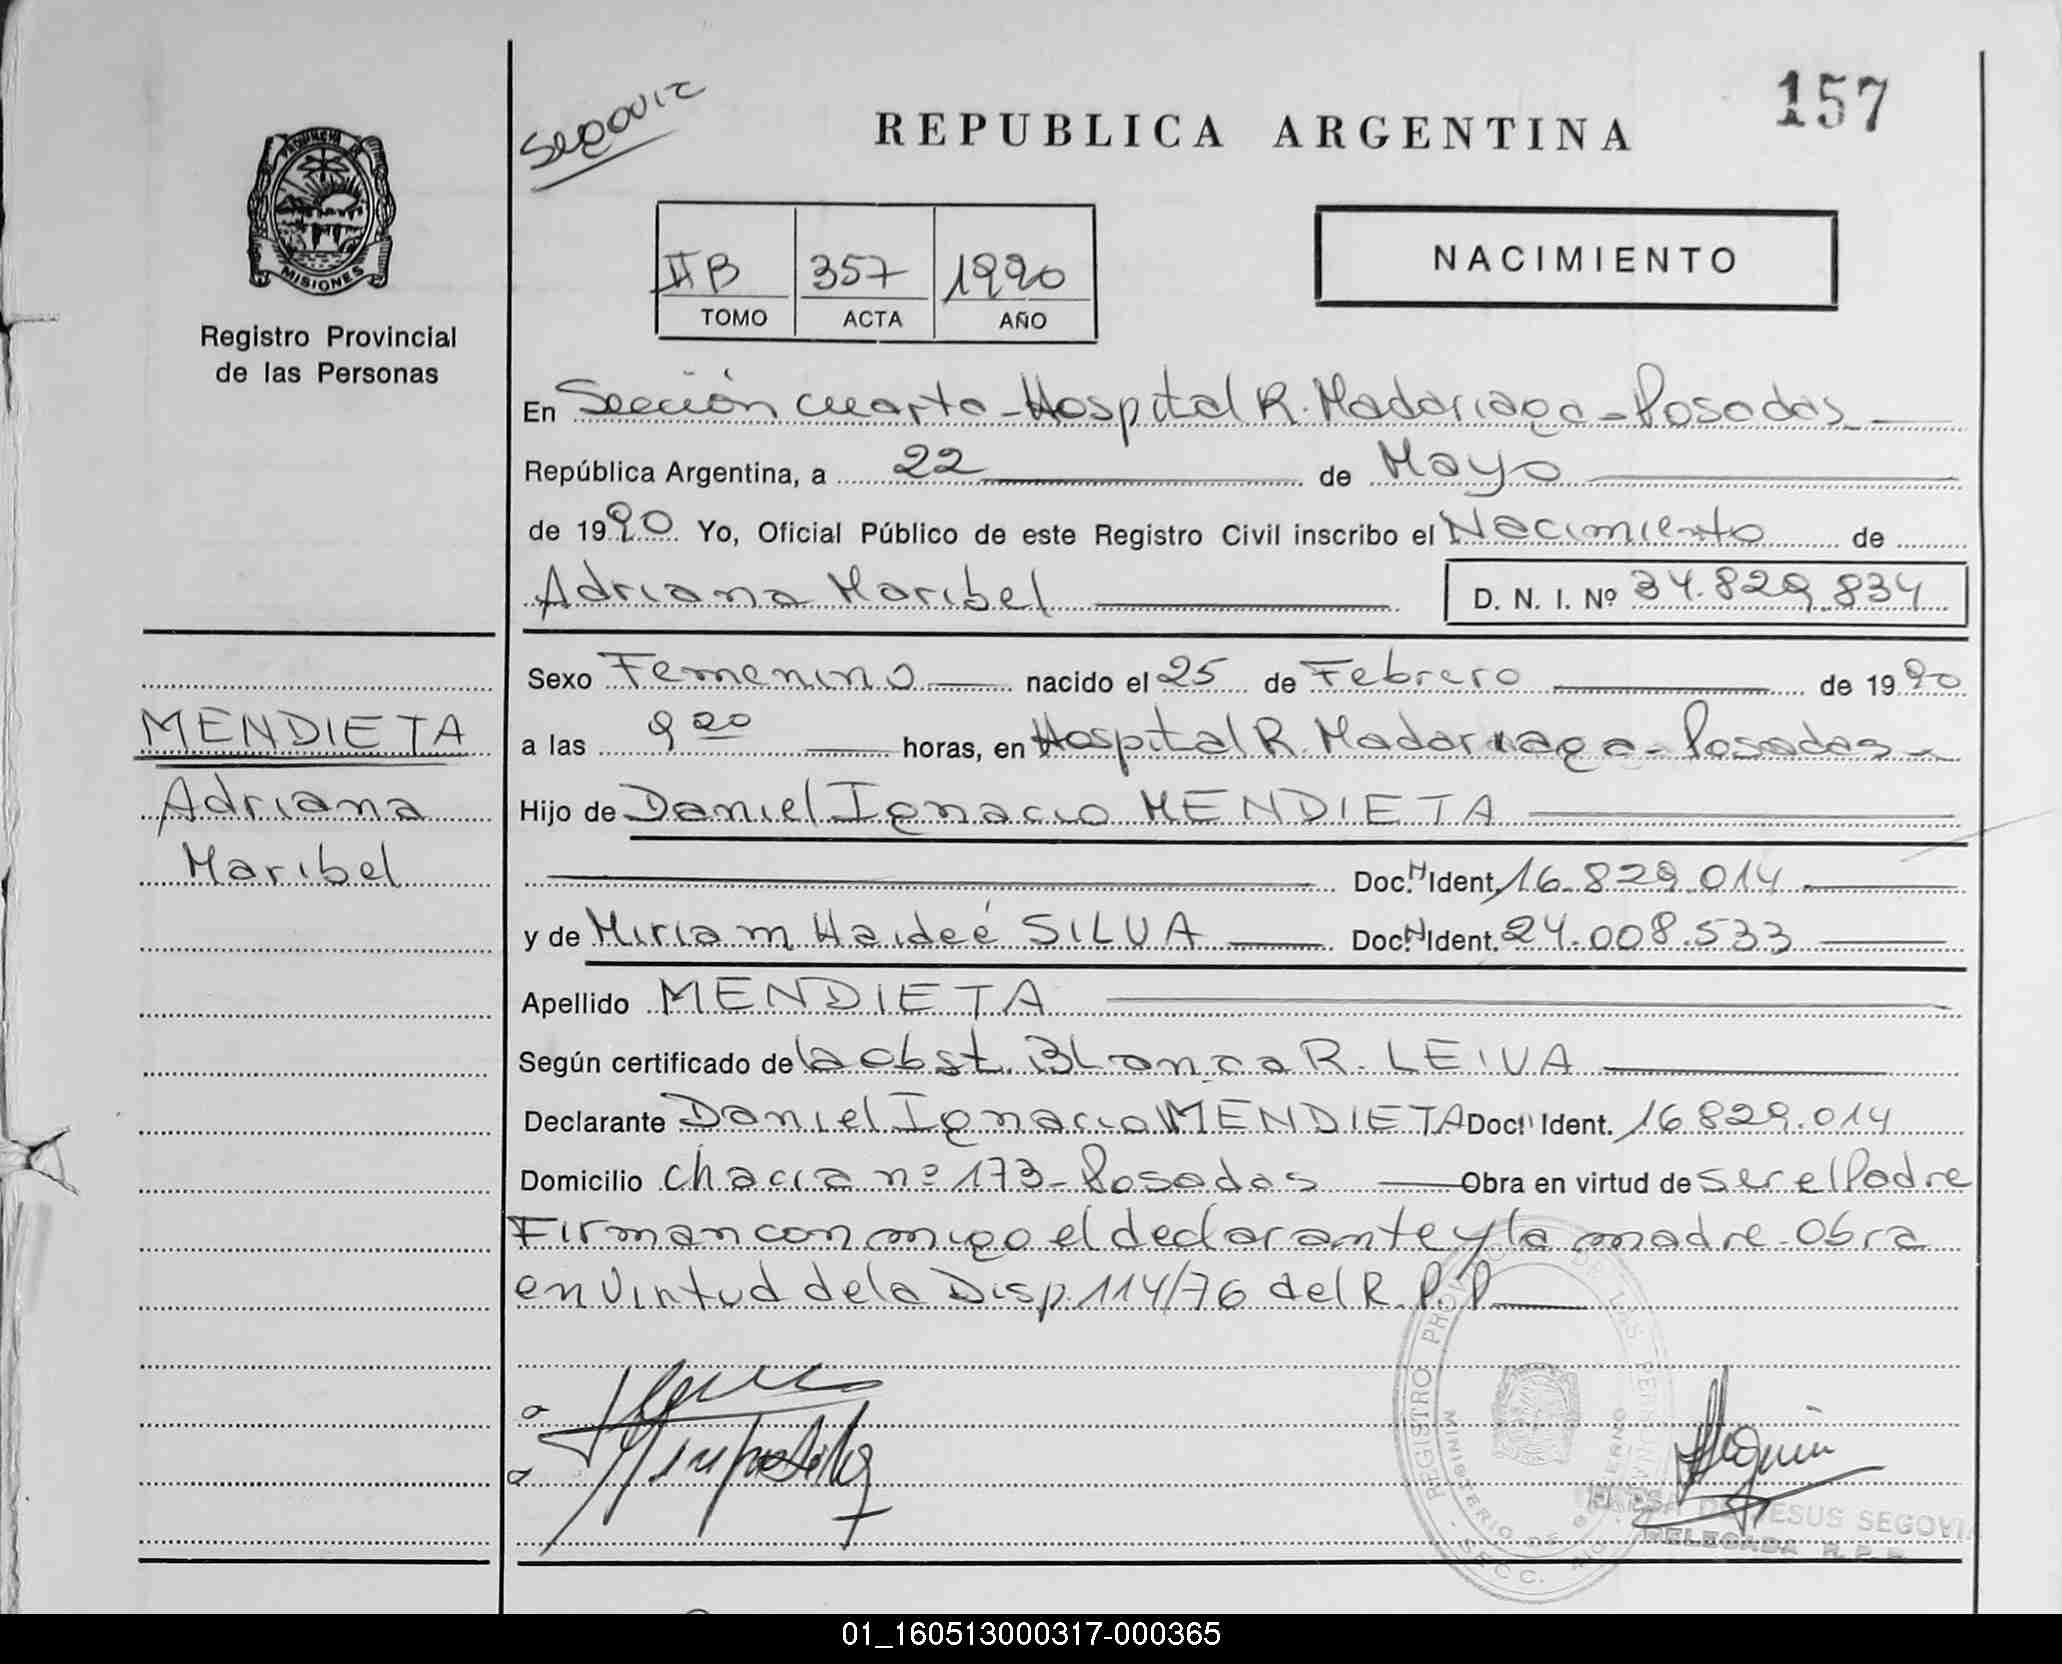 Segovia
REPUBLICA ARGENTINA
157
PROVINCIA DE
MISIONES
Registro Provincial
de las Personas
II B 357 1990
TOMO ACTA AÑO
NACIMIENTO
En Sección cuarta - Hospital R. Madariaga - Posadas
República Argentina, a 22 de Mayo
de 1990 Yo, Oficial Público de este Registro Civil inscribo el Nacimiento de
Adriana Maribel D. N. I. Nº 34.829.834
Sexo Femenino nacido el 25 de Febrero de 1990
a las 9 20 horas, en Hospital R. Madariaga - Posadas -
Hijo de Daniel Ignacio MENDIETA
Doc. N Ident. 16.829.014
y de Miriam Haideé SILVA Doc. N Ident. 24.008.533
Apellido MENDIETA
Según certificado de la obst. Blanca R. LEIVA
Declarante Daniel Ignacio MENDIETA Doc. N Ident. 16.829.014
Domicilio chacra nº 173 - Posadas Obra en virtud de ser el Padre
Firman conmigo el declarante y la madre - Obra
en Virtud de la Disp. 114/76 del R. P. P.
MENDIETA
Adriana
Maribel
REGISTRO PROVINCIAL DE LAS PERSONAS
MINISTERIO DE GOBIERNO
SECC.
DE JESUS SEGOVIA
DELEGADA R. P. P.
01_160513000317-000365